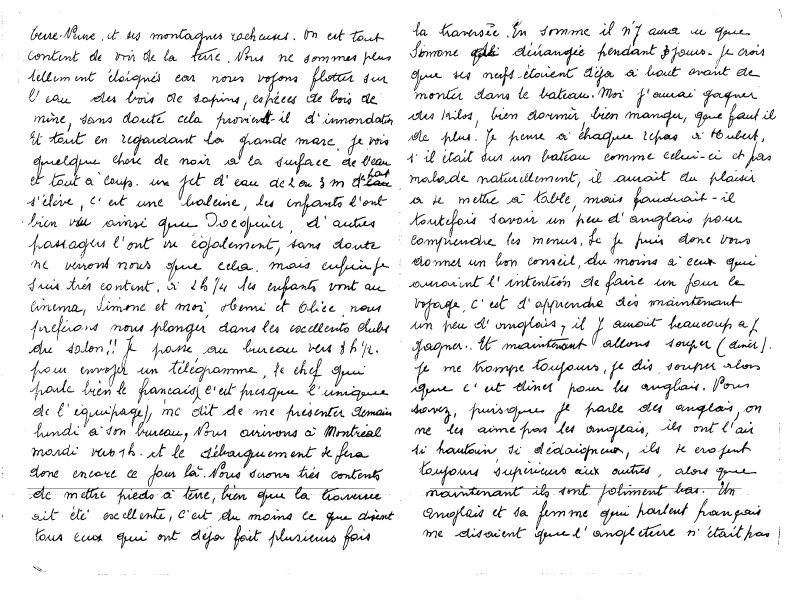 Terre-Neuve, et ses montagnes rocheuses. On est tout
content de voir de la terre. Nous ne sommes plus
tellement éloignés car nous voyons flotter sur
l'eau des bois de sapins, espèces de bois de
mine, sans doute cela provient-il d'innondation
Et tout en regardant la grande mare, je vois
quelque chose de noir à la surface de l'eau
et tout à coup, un jet d'eau de 2 ou 3 m de haut
s'élève, c'est une baleine, les enfants l'ont
bien vue ainsi que Jacques, d'autres
passagers l'ont vu également, sans doute
ne verrons nous que cela, mais enfin je
suis très content, à 2h1/4 les enfants vont au
cinéma, Simone et moi, Henri et Alice, nous
préférons nous plonger dans les excellents clubs
du salon!! Je passe au bureau vers 3h1/2
pour envoyer un télégramme, le chef qui
parle bien le francais (c'est presque l'unique
de l'équipage), me dit de me présenter demain
lundi à son bureau, Nous arrivons à Montréal
mardi vers 1h. et le débarquement se fera
donc encore ce jour là. Nous serons très contents
de mettre pieds à terre, bien que la traversée
ait été excellente, c'est du moins ce que disent
tous ceux qui ont déja fait plusieurs fois
la traversée. En somme il n'y aura eu que
Simone dérangée pendant 3 jours. Je crois
que ses nerfs étaient déja à bout avant de
monter dans le bateau. Moi j'aurai gagner
des kilos, bien dormir, bien manger, que faut il
de plus. Je pense à chaque repas à Hubert,
s'il était sur un bateau comme celui-ci et pas
malade naturellement, il aurait du plaisir
a se mettre à table, mais faudrait-il
toutefois savoir un peu d'anglais pour
comprendre les menus. Je puis donc vous
donner un bon conseil, du moins à ceux qui
auraient l'intention de faire un jour le
voyage, c'est d'apprendre dès maintenant
un peu d'anglais, il y aurait beaucoup a y
gagner. Et maintenant allons souper (diner).
Je me trompe toujours, je dis souper alors
que c'est diner pour les anglais. Vous
savez, puisque je parle des anglais, on
ne les aime pas les anglais, ils ont l'air
si hautain si dédaigneux, ils se croient
toujours supérieurs aux autres, alors que
maintenant ils sont joliment bas. Un
anglais et sa femme qui parlent français
me disaient que l'angleterre n'était pas